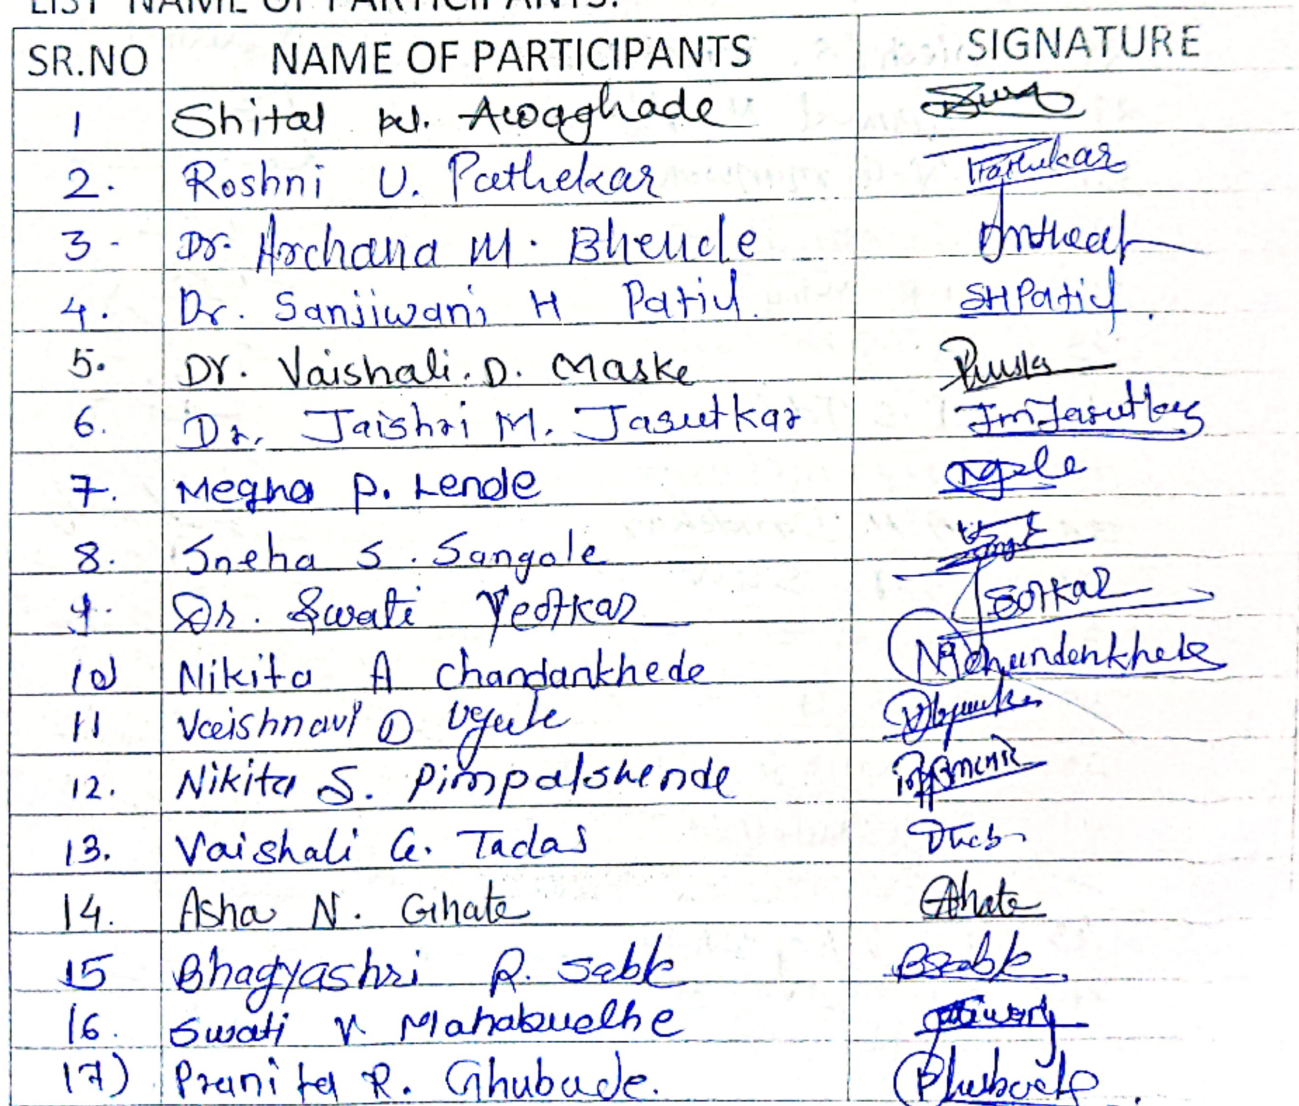 LIST NAME OF PARTICIPANTS:
SR.NO NAME OF PARTICIPANTS SIGNATURE
1 Shital W. Awaghade
2. Roshni U. Pathekar Pathekar
3 - Dr. Archana M. Bhende
4. Dr. Sanjiwani H Patil. SHPatil.
5. Dr. Vaishali. D. Maske
6. Dr. Jaishri M. Jasutkar JmJasutkar
7. Megha P. Lende
8. Sneha S. Sangole
9. Dr. Swati Yeotkar Yeotkar
10) Nikita A Chandankhede NAChandankhede
11 Vaishnavi D Ugule
12. Nikita S. Pimpalshende
13. Vaishali G. Tadas
14. Asha N. Ghate Ghate
15 Bhagyashri R. Sable BSable
16. Swati V Mahabudhe
17) Pranita R. Ghubade.